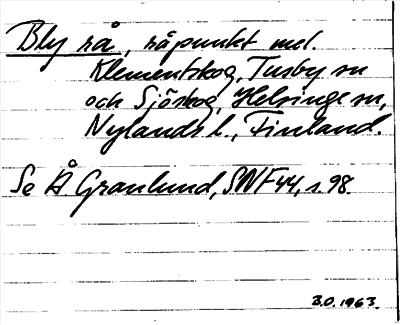 Bly rå, råpunkt mel.
Klementskog, Tusby sn
och Sjöskog, Helsinge sn,
Nylands l., Finland.
Se Å. Granlund, SNF 44, s. 98.
B.O. 1963.